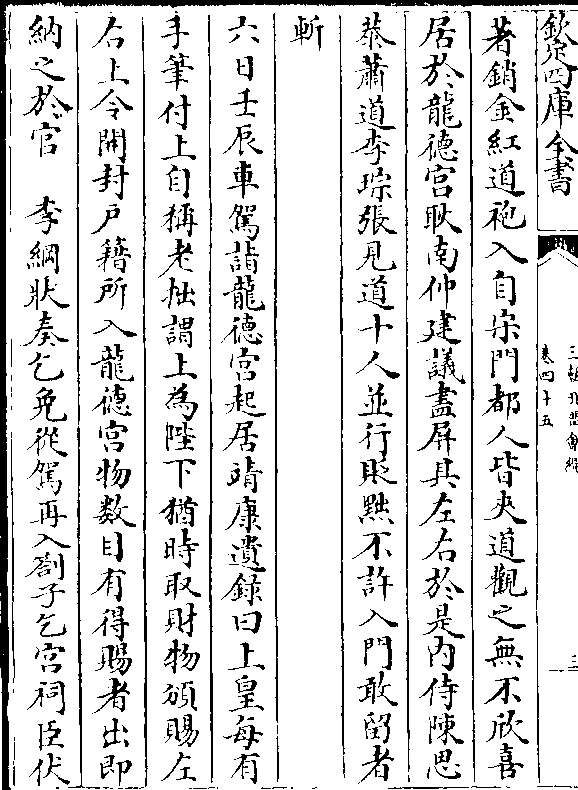 欽定四庫全書
三朝北盟會編
卷四十五
三
著銷金紅道袍入自宋門都人皆夾道觀之無不欣喜
居於龍德宮耿南仲建議盡屏其左右於是內侍陳思
恭蕭道李琮張見道十人並行貶黜不許入門敢留者
斬
六日壬辰車駕詣龍德宮起居靖康遺錄曰上皇每有
手筆付上自稱老拙謂上為陛下猶時取財物頒賜左
右上令開封戶籍所入龍德宮物數目有得賜者出即
納之於官　李綱狀奏乞免從駕再入劄子乞宮祠臣伏